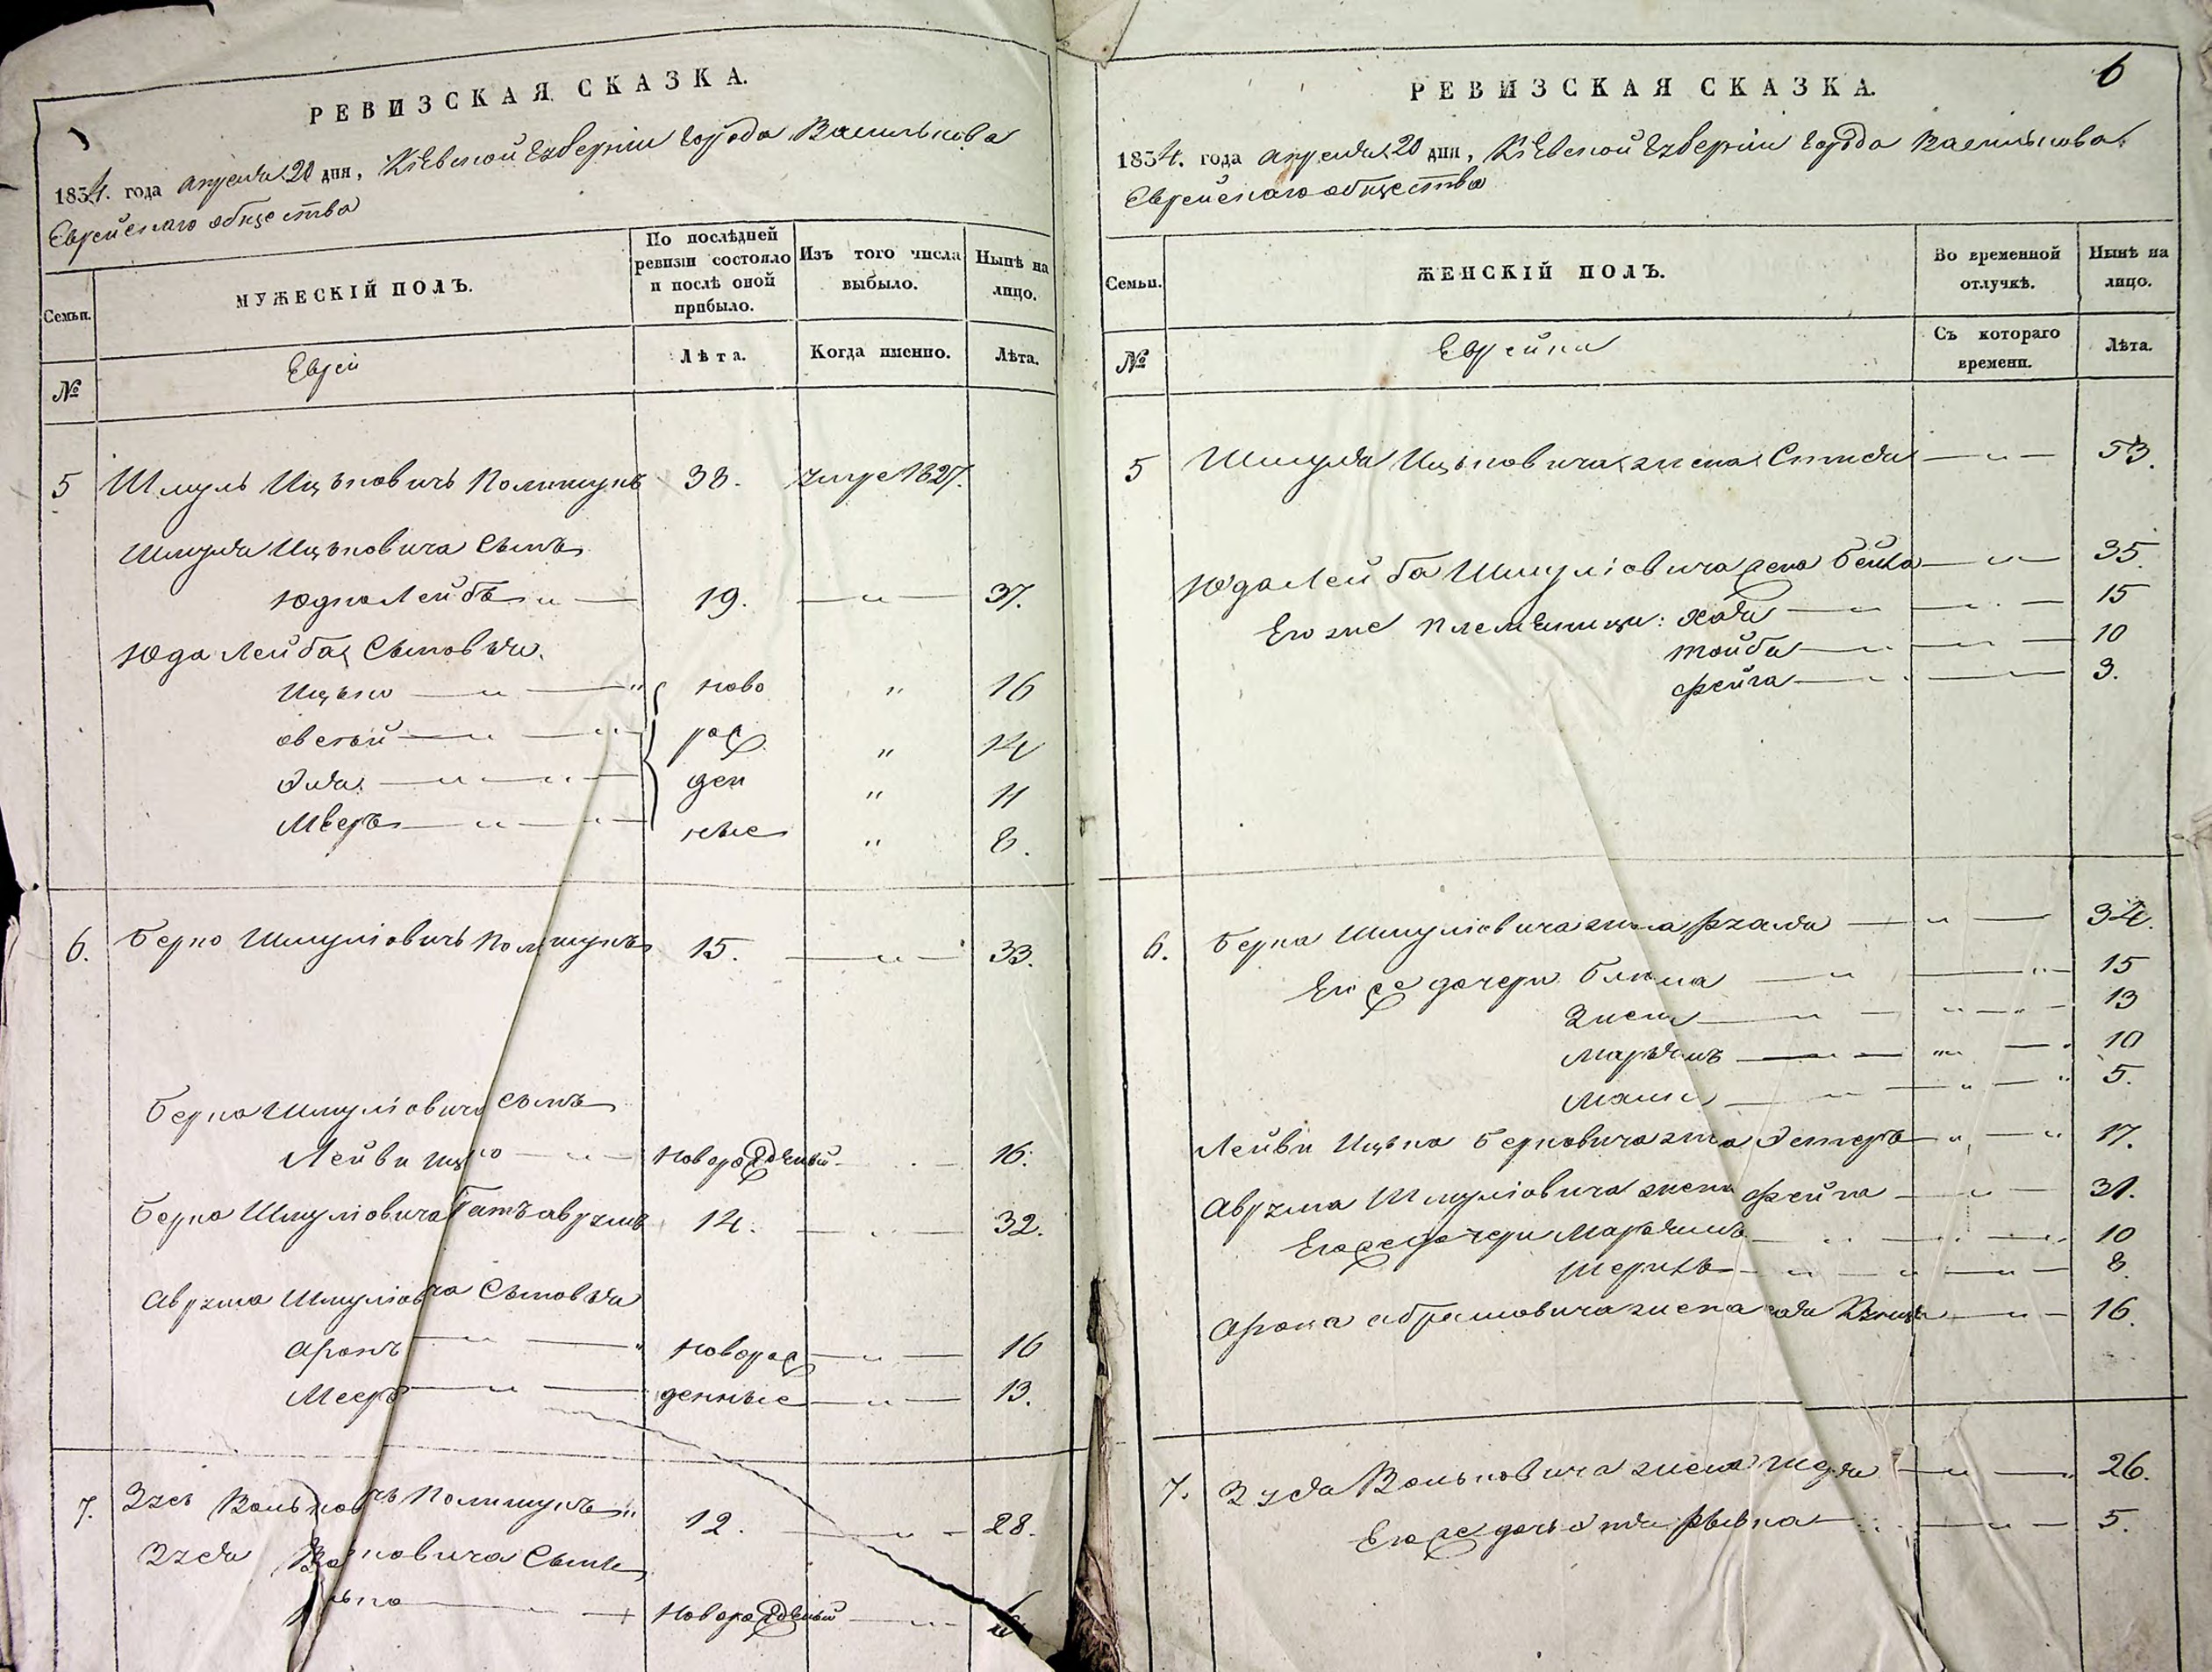 РЕВИЗСКАЯ СКАЗКА.
1834. года апреля 20 дня, Кіевской Губерніи города Василькова
Еврейскаго общества
Семьи.
МУЖЕСКІЙ ПОЛЪ.
По послѣдней ревизіи состояло и послѣ оной прибыло.
Изъ того числа выбыло.
Нынѣ на лицо.
№
Евреи
Лѣта.
Когда именно.
Лѣта.
5 Шмуль Ицьковичъ Полищукъ 38. умре 1827.
Шмуля Ицьковича Сынъ
Юдко Лейбъ 19. — „ — 37.
Юда Лейба Сыновья
Ицько — „ — ново „ 16
Овсѣй — „ — рож „ 14
Эля — „ — ден „ 11
Мееръ — „ — ные „ 8.
6. Берко Шмуліовичъ Полищукъ 15. — „ — 33.
Берка Шмуліовича сынъ
Лейви Ицко — „ — новорожденый 16.
Берка Шмуліовича братъ Аврумъ 14. 32.
Аврума Шмуліовича Сыновья
Аронъ — „ — новорож — „ — 16
Мееръ — „ — денные — „ — 13.
7. Зусь Вольковичъ Полищукъ „ 12. — „ — 28.
Зуся Вольковича Сынъ
новорожденый — „ —
РЕВИЗСКАЯ СКАЗКА.
6
1834. года апреля 20 дня, Кіевской Губерніи города Василькова
Еврейскаго общества
Семьи.
ЖЕНСКІЙ ПОЛЪ.
Во временной отлучкѣ.
Нынѣ на лицо.
№
Еврейки
Съ котораго времени.
Лѣта.
5 Шмуля Ицьковича жена — „ — 53.
Юда Лейба Шмуліовича жена Бейла — „ — 35.
Его же племеницы: Хая — „ — 15
Тойба — „ — 10
Фейга — „ — 3.
6. Берка Шмуліовича жена — „ — 34.
Его же дочери Блюма — „ — 15
Зисля — „ — 13
Марьямъ — „ — 10
— „ — 5.
Лейви Ицька Берковича жена Эстеръ — „ — 17.
Аврума Шмуліовича жена Фейга — „ — 31.
Его же дочери Марьямъ — „ — 10
— „ — 8.
Арона Абрамовича жена Хая — „ — 16.
7. Зуся Вольковича жена — „ — 26.
Его же дочь Рывка — „ — 5.